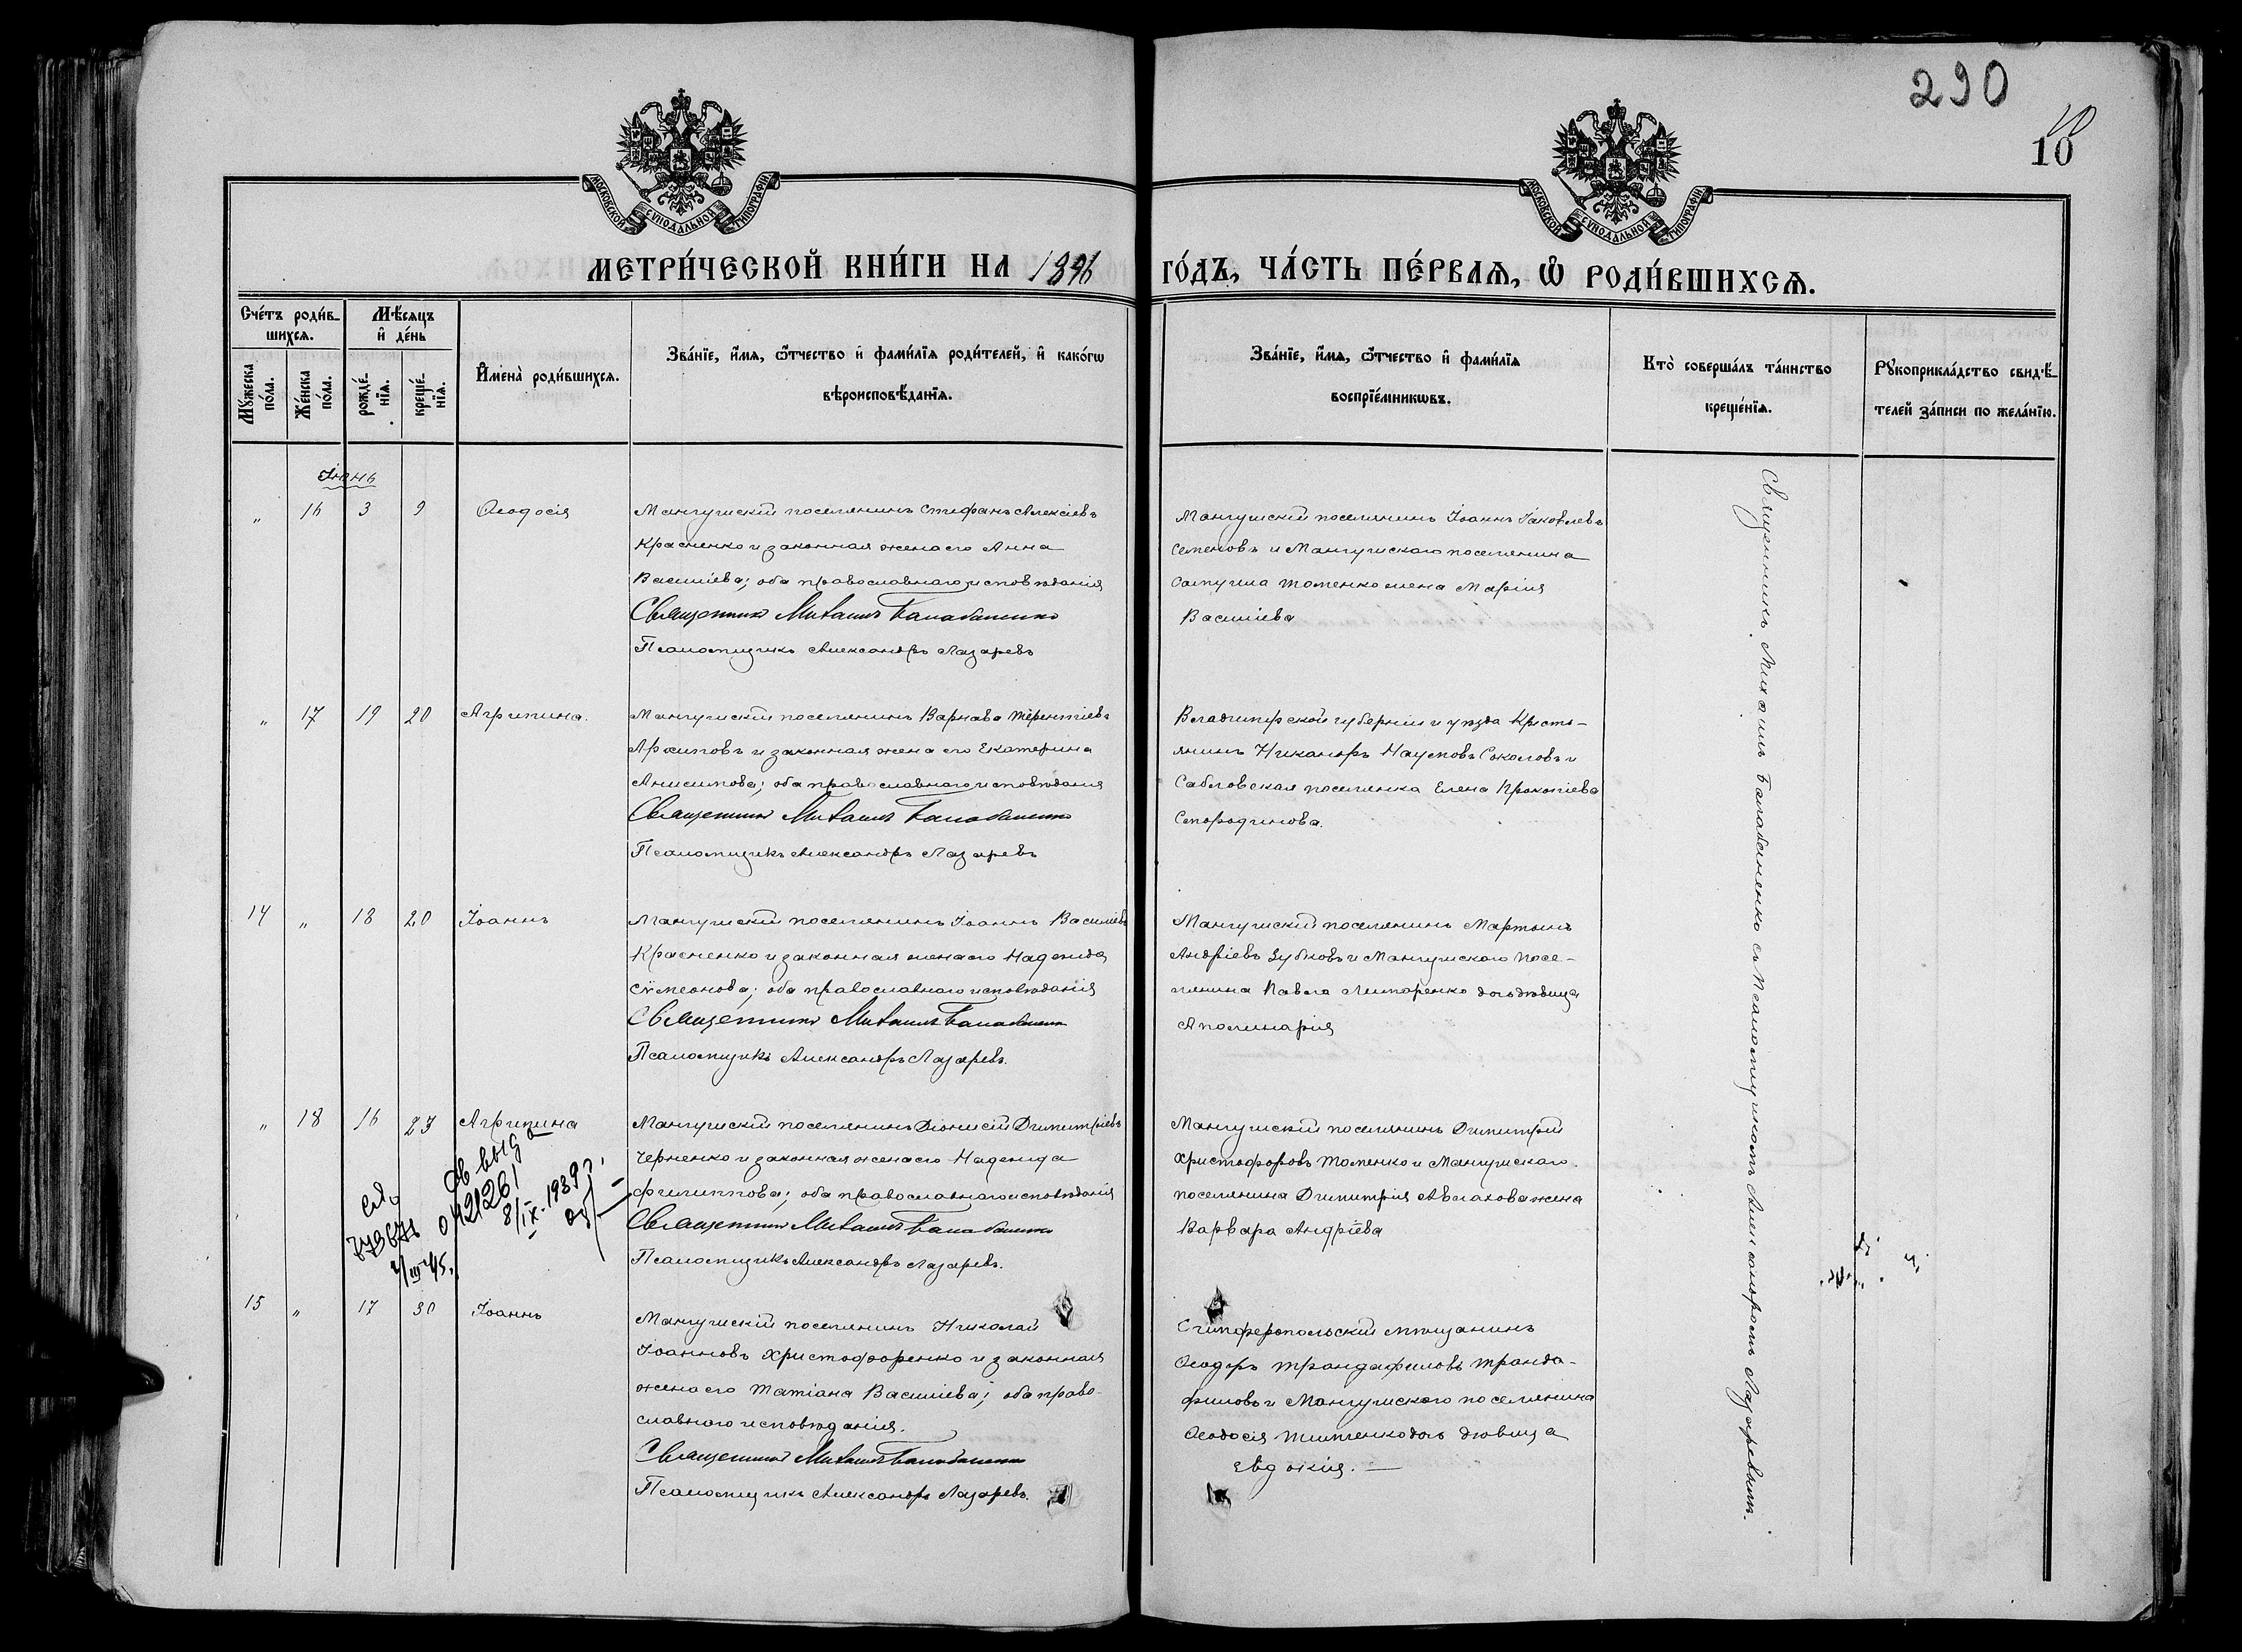 290
10
10
МОСКОВСКОЙ СѴНОДАЛЬНОЙ ТИПОГРАФІИ
МОСКОВСКОЙ СѴНОДАЛЬНОЙ ТИПОГРАФІИ
МЕТРИ́ЧЕСКОЙ КНИ́ГИ НА 1896 ГО́ДЪ, ЧА́СТЬ ПЕ́РВАѦ, Ѡ РОДИ́ВШИХСѦ.
Сче́тъ роди́в-
шихсѧ.
Мѣ́сѧцъ
и҆ де́нь
Мꙋ́жеска
по́ла.
Же́нска
по́ла.
рожде́-
нїѧ.
креще́-
нїѧ.
И҆мена̀ роди́вшихсѧ.
Зва́нїе, и҆́мѧ, ѻ҆́тчество и҆ фами́лїѧ роди́телей, и҆ како́гѡ
вѣроисповѣ́данїѧ.
Зва́нїе, и҆́мѧ, ѻ҆́тчество и҆ фами́лїѧ
воспрїе́мникѡвъ.
Кто̀ соверша́лъ та́инство
креще́нїѧ.
Рꙋкоприкла́дство свидѣ́-
телей за́писи по жела́нїю.
Іюнь
" 16 3 9 Ѳеодосія
Мангушскій поселянинъ Стефанъ Алексіевъ
Красненко и законная жена его Анна
Василіева; оба православнаго исповѣданія
Священникъ Михаилъ Балабаненко
Псаломщикъ Александръ Лазаревъ
Мангушскій поселянинъ Іоаннъ Іаковлевъ
Семеновъ и Мангушскаго поселянина
Томенко жена Марія
Василіева
" 17 19 20 Агрипина.
Мангушскій поселянинъ Варнава Терентіевъ
Архиповъ и законная жена его Екатерина
Анисимова; оба православнаго исповѣданія
Священникъ Михаилъ Балабаненко
Псаломщикъ Александръ Лазаревъ
Владимірской губерніи и уѣзда Кресть-
янинъ Никаноръ Наумовъ Соколовъ и
Сабловская поселянка Елена Прокопіева
Смородинова.
14 " 18 20 Іоаннъ
Мангушскій поселянинъ Іоаннъ Василіевъ
Красненко и законная жена его Надежда
Сѵмеонова; оба православнаго исповѣданія
Священникъ Михаилъ Балабаненко
Псаломщикъ Александръ Лазаревъ.
Мангушскій поселянинъ Мартинъ
Андріевъ Зубковъ и Мангушскаго посе-
лянина Павла дочь дѣвица
Аполинарія
" 18 16 23 Агрипина
Мангушскій поселянинъ Діонисій Димитріевъ
Черненко и законная жена его Надежда
Филиппова; оба православнаго исповѣданія
Священникъ Михаилъ Балабаненко
Псаломщикъ Александръ Лазаревъ.
Мангушскій поселянинъ Димитрій
Христофоровъ Томенко и Мангушскаго
поселянина Димитрія Авлахова жена
Варвара Андріева
св выд
042126
8/IX-1939 г.
/III 45.
15 " 17 30 Іоаннъ
Мангушскій поселянинъ Николай
Іоанновъ Христофоренко и законная
жена его Татіана Василіева; оба право-
славнаго исповѣданія.
Священникъ Михаилъ Балабаненко
Псаломщикъ Александръ Лазаревъ.
Симферопольскій мѣщанинъ
Ѳеодоръ Трандафиловъ Транда-
филовъ и Мангушскаго поселянина
Ѳеодосія дочь дѣвица
Евдокія. —
Священникъ Михаилъ Балабаненко съ Псаломщикомъ Александромъ Лазаревымъ.